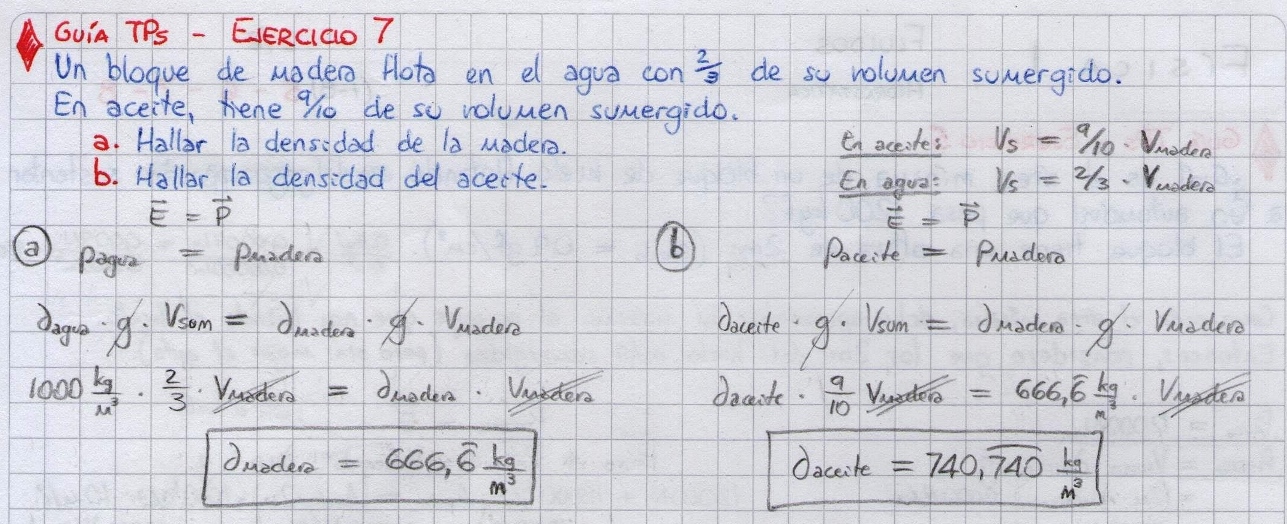 GUÍA TPs - EJERCICIO 7
Un bloque de madera flota en el agua con 2/3 de su volumen sumergido.
En aceite, tiene 9/10 de su volumen sumergido.
a. Hallar la densidad de la madera.
b. Hallar la densidad del aceite.
En aceite: Vs = 9/10 Vmadera
En agua: Vs = 2/3 · Vmadera
E⃗ = P⃗
a Pagua = Pmadera
∂agua · g · Vsum = ∂madera · g · Vmadera
1000 kg/m³ · 2/3 · Vmadera = ∂madera · Vmadera
∂madera = 666,6̅ kg/m³
E⃗ = P⃗
b Paceite = Pmadera
∂aceite · g · Vsum = ∂madera · g · Vmadera
∂aceite · 9/10 Vmadera = 666,6̅ kg/m³ · Vmadera
∂aceite = 740,7̅4̅0̅ kg/m³